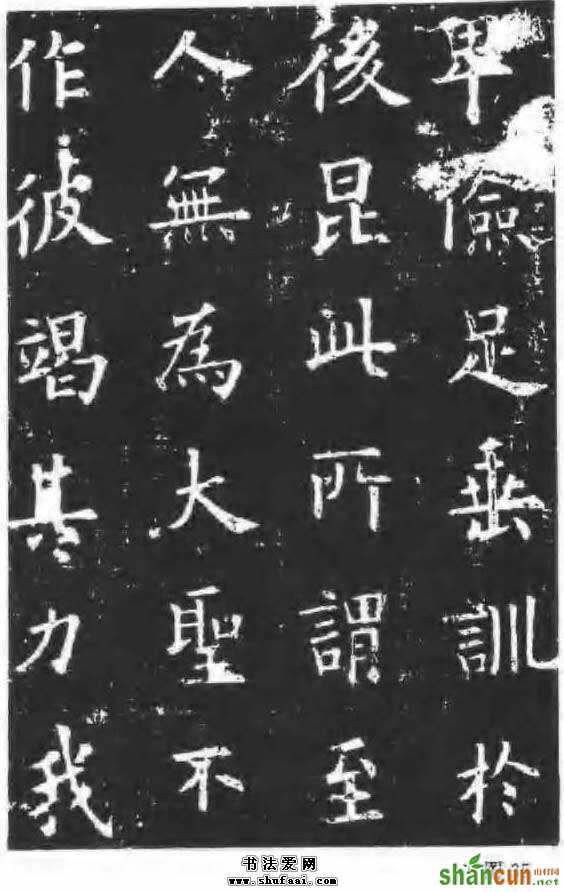 卑儉足垂訓於
後昆此所謂至
人無為大聖不
作彼竭其力我
书法爱网
www.shufaai.com
shancun
山村网
.net